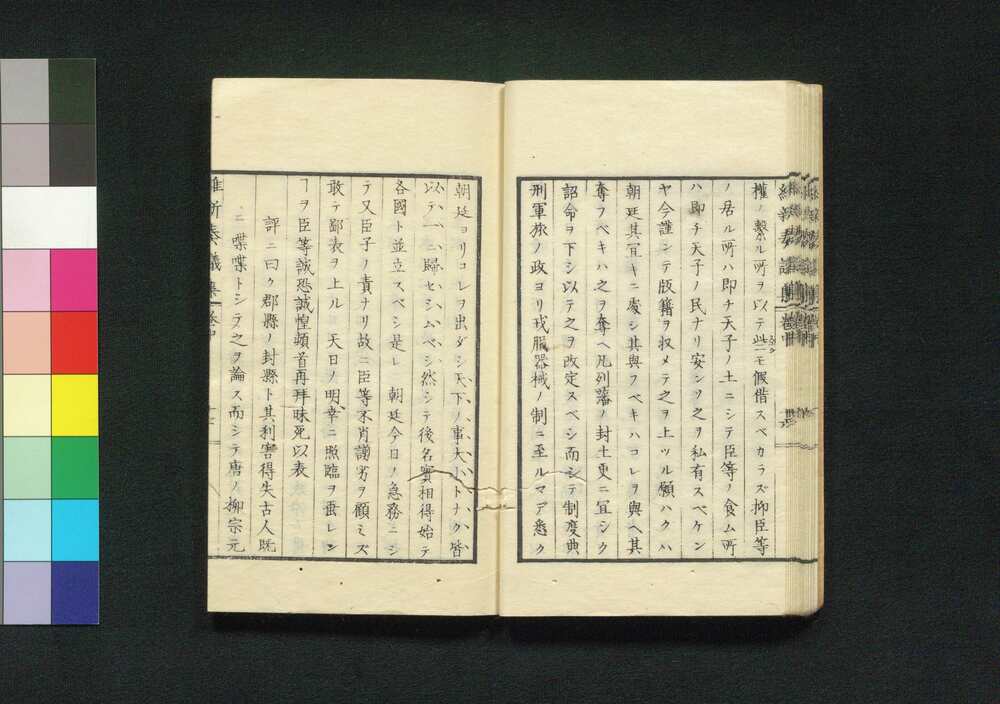 權ノ繋ル所ヲ以テ些モ假借スベカラズ抑臣等
ノ居ル所ハ即チ天子ノ土ニシテ臣等ノ食ム所
ハ即チ天子ノ民ナリ安ンソ之ヲ私有スベケン
ヤ今謹ンテ版籍ヲ収メテ之ヲ上ツル願ハクハ
朝廷其冝キニ處シ其與フベキハコレヲ與ヘ其
奪フベキハ之ヲ奪ヘ凡列藩ノ封土更ニ冝シク
詔命ヲ下シ以テ之ヲ改定スベシ而シテ制度典
刑軍旅ノ政ヨリ戎服器械ノ制ニ至ルマデ悉ク
朝廷ヨリコレヲ出ダシ天下ノ事大小トナク皆
以テ一ニ歸セシムベシ然シテ後名實相得始テ
各國ト並立スベシ是レ 朝廷今日ノ急務ニシ
テ又臣子ノ責ナリ故ニ臣等不肖謭劣ヲ顧ミズ
敢テ鄙表ヲ上ル 天日ノ明幸ニ照臨ヲ垂レン
ヿヲ臣等誠恐誠惶頓首再拜昧死以表
評ニ曰ク郡縣ノ封縣ト其利害得失古人既
ニ喋喋トシテ之ヲ論ス而シテ唐ノ柳宗元
維新奏議集